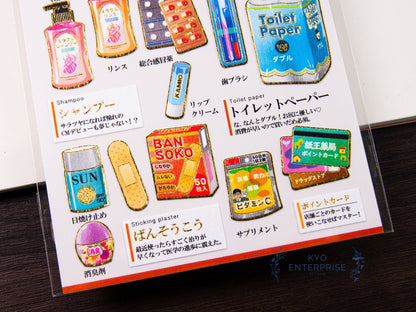 リンス
総合感冒薬
歯ブラシ
Toilet
Paper
ダブル
Shampoo
シャンプー
サラツヤになれば憧れの
CMデビューも夢じゃない！？
KAMIO
リップ
クリーム
Toilet paper
トイレットペーパー
な、なんとダブル！お尻に優しい♡
消費が早いので買いだめ必須。
SUN
日焼け止め
BAN
SOKO
しなやか
ムレない
やわらか
50
枚入
Sticking plaster
ばんそうこう
最近使ったらすごく治りが
早くなってて医学の進歩に震えた。
ビタミンC
サプリメント
紙王薬局
ポイントカード
ドラッグストア
ポイントカード
店舗ごとのカードを
使いこなせばマスター！
消臭剤
KYO
ENTERPRISE